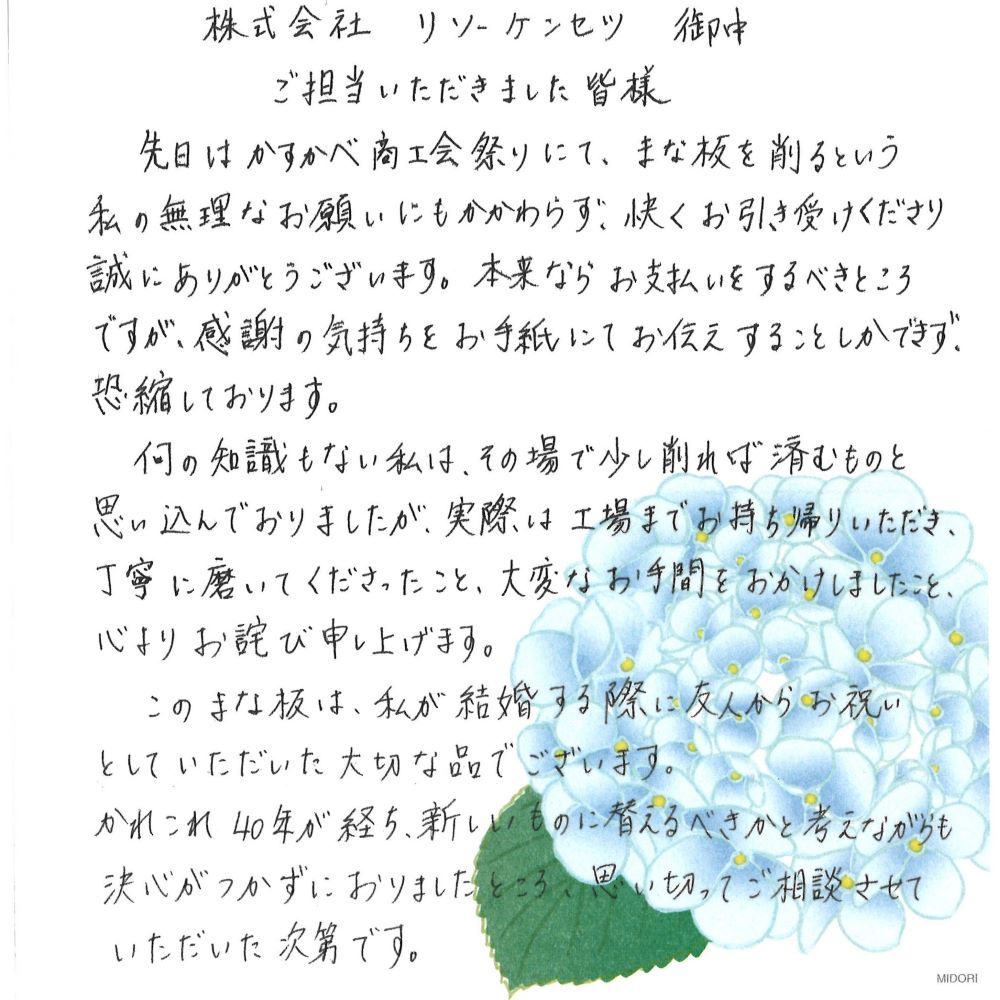 株式会社 リソーケンセツ 御中
ご担当いただきました皆様
先日はかすかべ商工会祭りにて、まな板を削るという
私の無理なお願いにもかかわらず、快くお引き受けくださり
誠にありがとうございます。本来ならお支払いをするべきところ
ですが、感謝の気持ちをお手紙にてお伝えすることしかできず、
恐縮しております。
何の知識もない私は、その場で少し削れば済むものと
思い込んでおりましたが、実際は工場までお持ち帰りいただき、
丁寧に磨いてくださったこと、大変なお手間をおかけしましたこと、
心よりお詫び申し上げます。
このまな板は、私が結婚する際に友人からお祝い
としていただいた大切な品でございます。
かれこれ40年が経ち、新しいものに替えるべきかと考えながらも
決心がつかずにおりましたところ、思い切ってご相談させて
いただいた次第です。
MIDORI